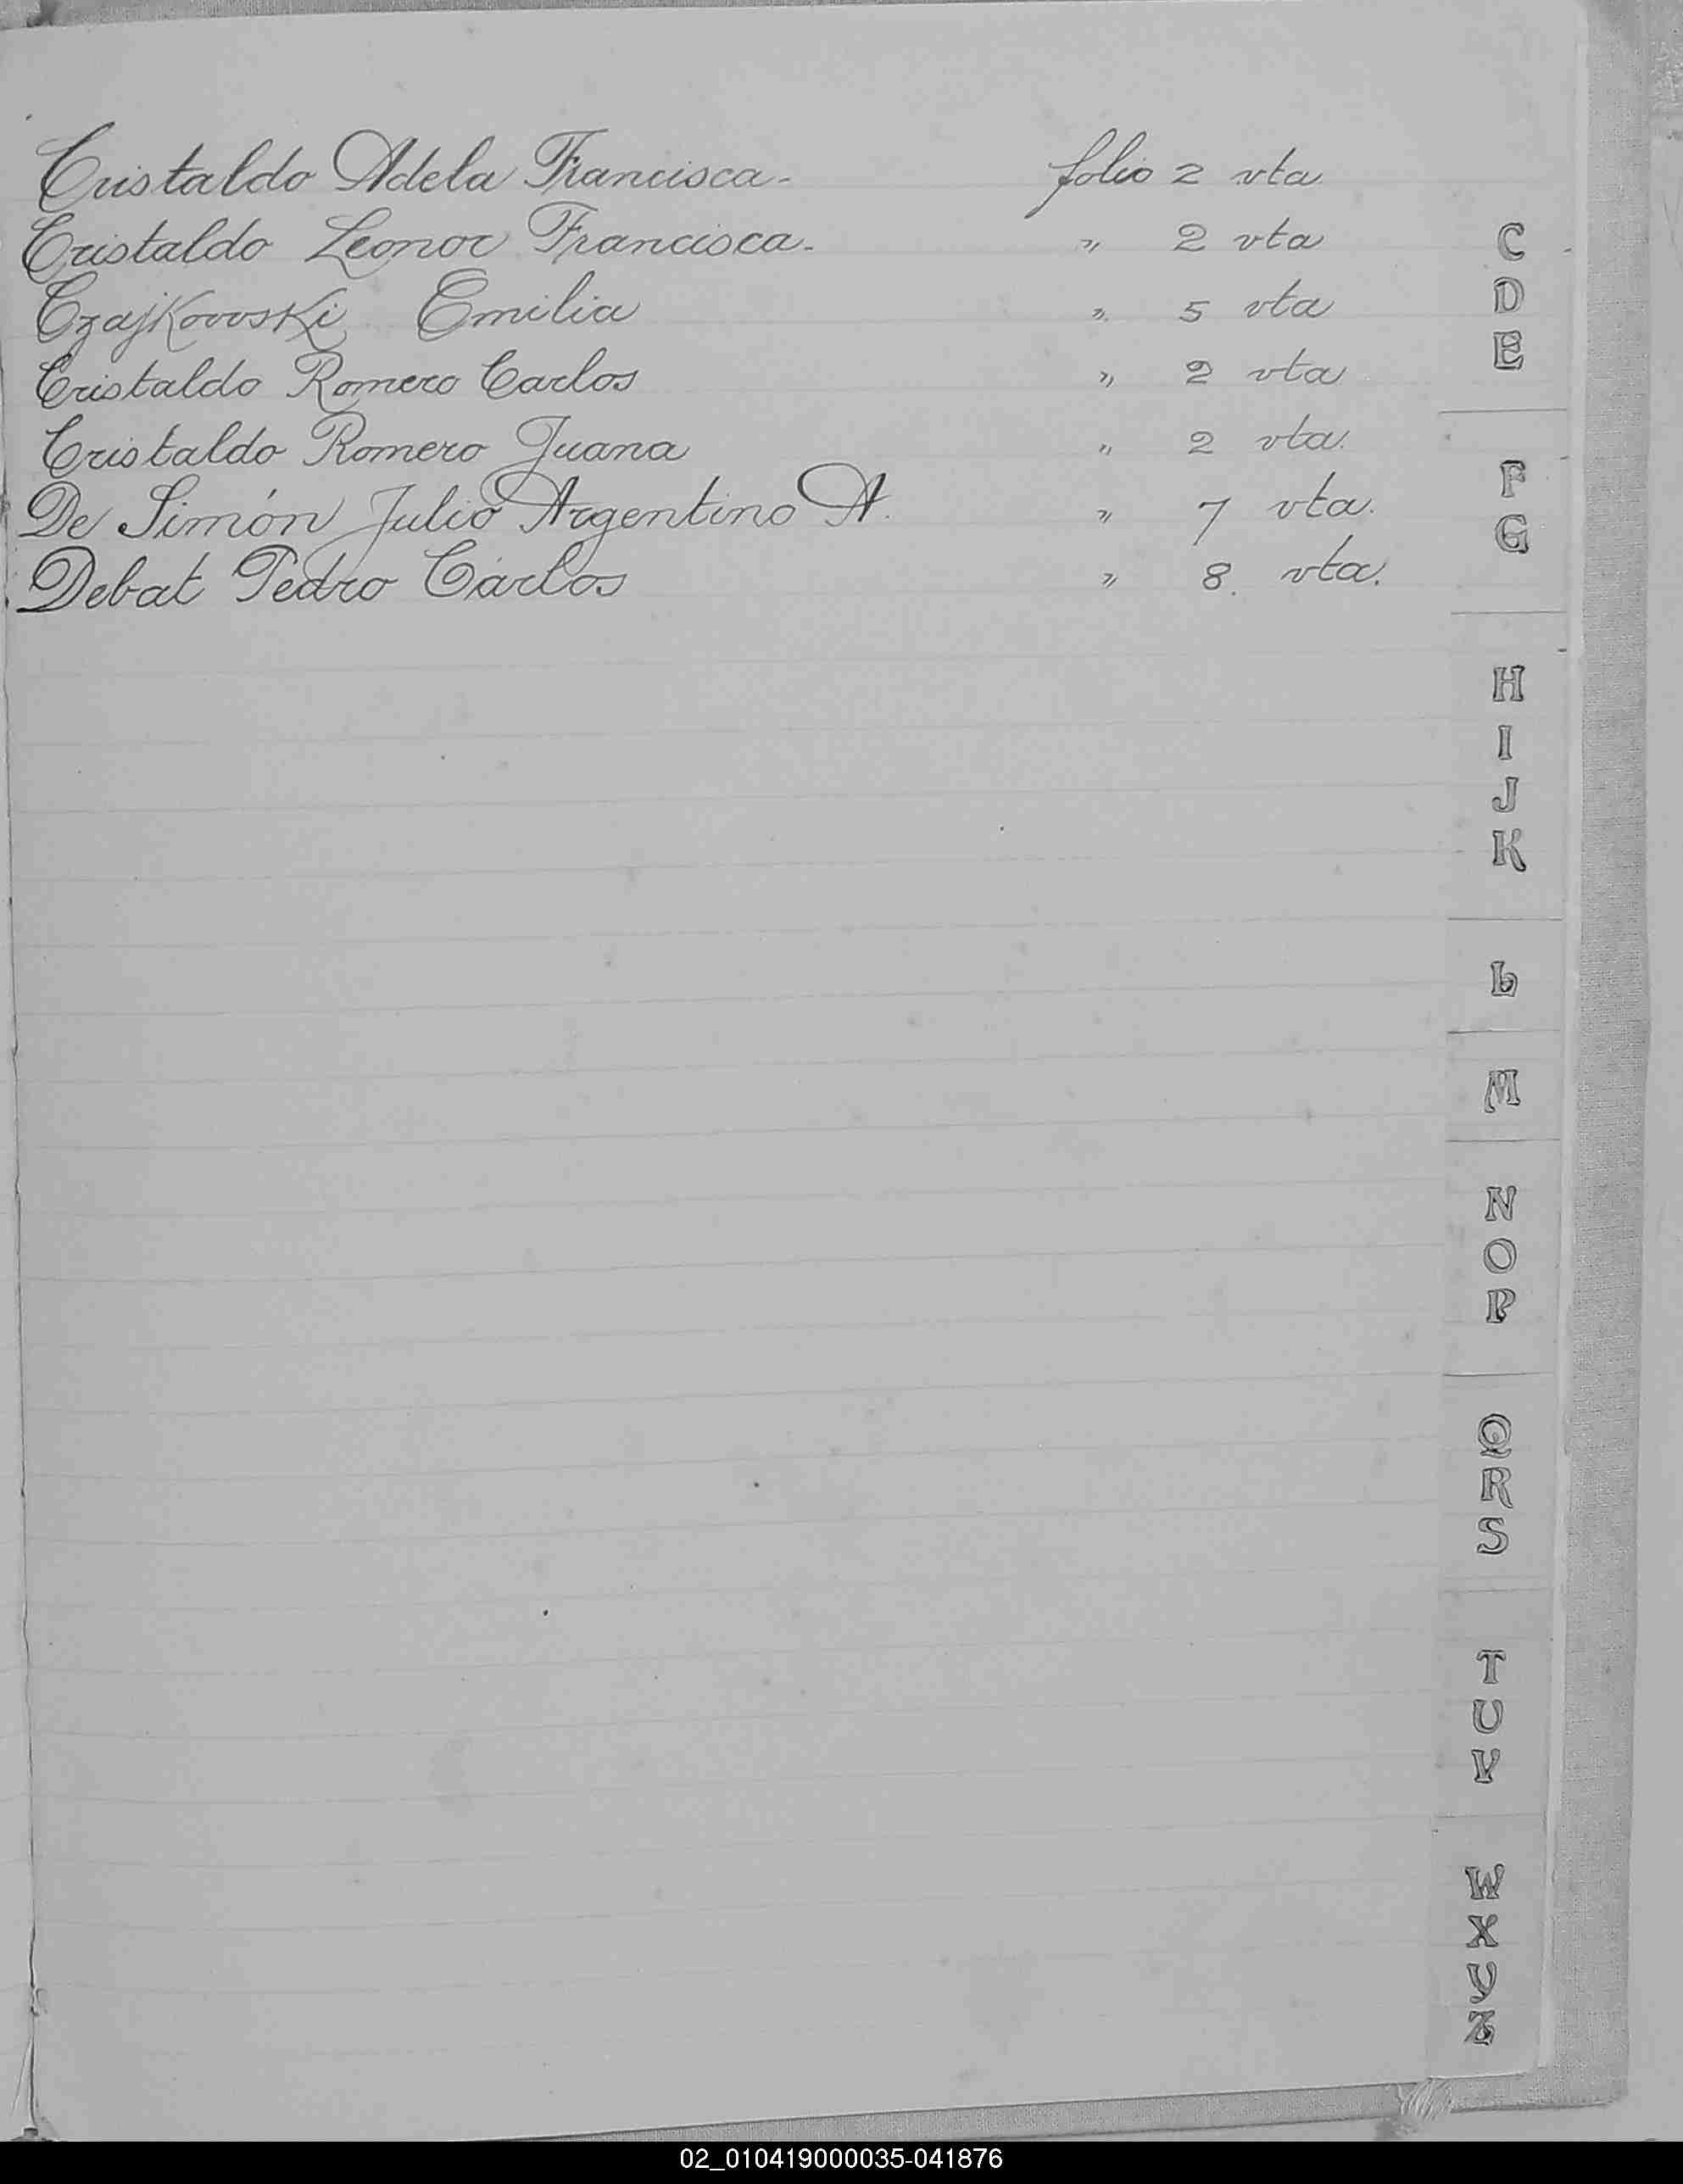 Cristaldo Adela Francisca- folio 2 vta
Cristaldo Leonor Francisca- " 2 vta
Czajkowski Emilia " 5 vta
Cristaldo Romero Carlos " 2 vta
Cristaldo Romero Juana " 2 vta.
De Simón Julio Argentino A. " 7 vta.
Debat Pedro Carlos " 8. vta.
C
D
E
F
G
H
I
J
K
L
M
N
O
P
Q
R
S
T
U
V
W
X
Y
Z
02_010419000035-041876